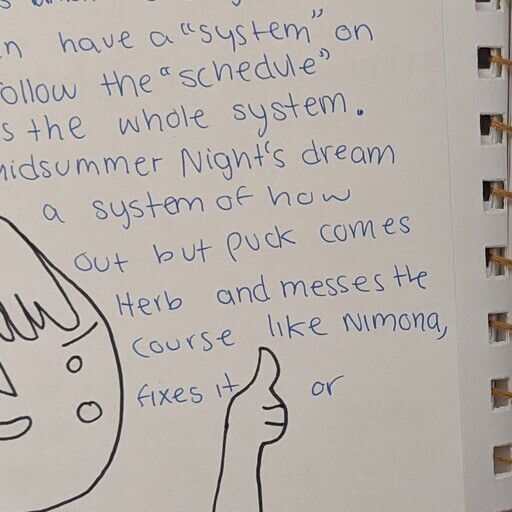 have a "system" on
the "schedule"
the whole system.
Night's dream
a system of how
out but Puck comes
Herb and messes the
course like Nimona,
fixes it or